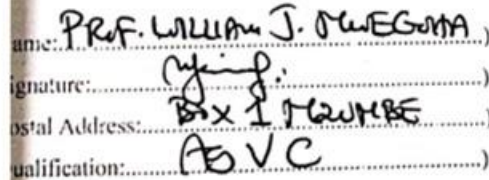 ame: PROF. WILLIAM J. MWEGOHA )
ignature: )
ostal Address: BOX 1 MZUMBE )
ualification: AG VC )